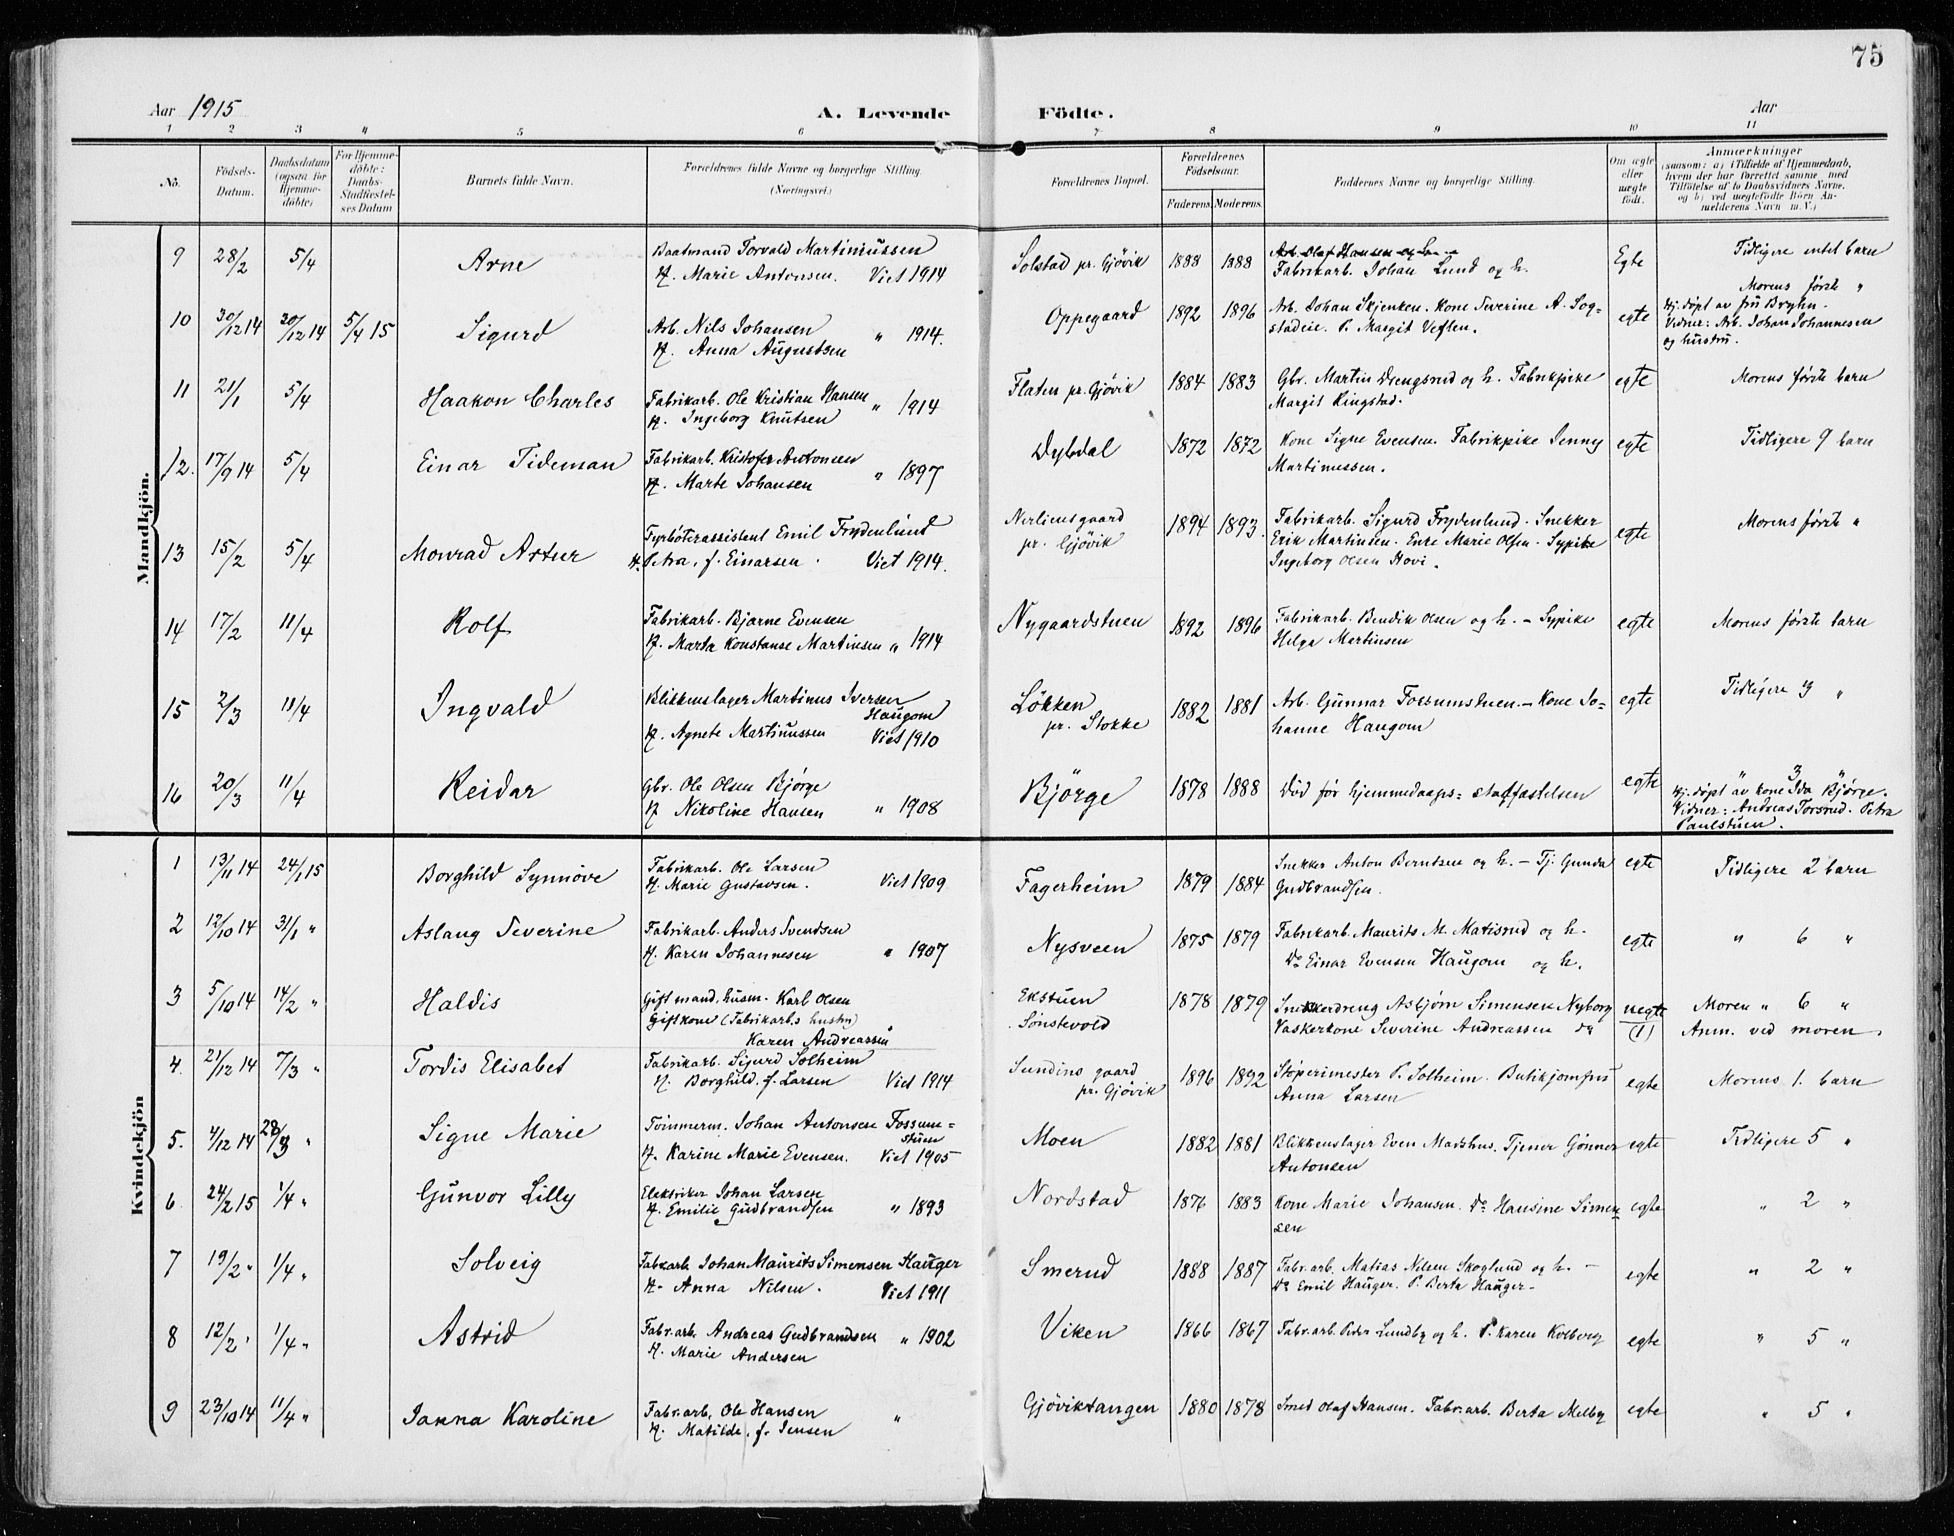 75
Aar 1915 A. Levende Födte. Aar
1 2 3 4 5 6 7 8 9 10 11
No. Födsels-Datum. Daabsdatum (ogsaa for Hjemme-döbte) For Hjemme-döbte: Daabs-Stadfæstel-ses Datum Barnets fulde Navn. Forældrenes fulde Navne og borgerlige Stilling. (Næringsvei.) Forældrenes Bopæl. Forældrenes Födselsaar. Faderens. Moderens. Faddernes Navne og borgerlige Stilling. Om ægte eller uægte födt. Anmærkninger (saasom: a) i Tilfælde af Hjemmedaab, hvem der har forrettet samme, med Tilföielse af to Daabsvidners Navne, og b) ved uægtefödte Börn An-melderens Navn m.V.)
Mandkjön.
9 28/2 5/4 Arne Baatmand Torvald Martiniussen Solstad pr. Gjövik 1888 1888 Arb. Olaf Hansen og Egte Tidligere intet barn
H. Marie Antonsen. Viet 1914 Fabrikarb. Johan Lund og h.
Morens første "
10 30/12 14 30/12 14 5/4 15 Sigurd Arb. Nils Johansen Oppegaard 1892 1896 Arb. Johan Skjenken. Kone Severine A. Sog- egte Hj. døpt av fru Bryhn.
H. Anna Augustsen " 1914. stadeie. P. Margit Veflen. Vidner: Arb. Johan Johannesen
og hustru.
11 21/1 5/4 Haakon Charles Fabrikarb. Ole Kristian Hansen Flaten pr. Gjövik 1884 1883 Gbr. Martin Drengsrud og h. Fabrikpike egte Morens første barn
H. Ingeborg Knutsen " 1914 Margit Ringstad.
12. 17/9 14 5/4 Einar Tideman Fabrikarb. Kristofer Antonsen Dybdal 1872 1872 Kone Signe Evensen. Fabrikpike Jenny egte Tidligere 9 barn
H. Marte Johansen " 1897 Martinussen.
13 15/2 5/4 Monrad Artur Fyrböterassistent Emil Frydenlund Nerliensgaard pr. Gjövik 1894 1893. Fabrikarb. Sigurd Frydenlund. Snekker egte Morens første "
H. Petra, f. Einarsen. Viet 1914. Erik Martinsen. Enke Marie Olsen. Sypike
Ingeborg Olsen Hovi.
14 17/2 11/4 Rolf Fabrikarb. Bjarne Evensen Nygaardstuen 1892 1896 Fabrikarb. Bendik Olsen og h. - Sypike egte Morens første barn
H. Marta Konstanse Martinsen " 1914 Helga Martinsen
15 2/3 11/4 Ingvald Blikkenslager Martinus Iversen Haugom Løkken pr. Stokke 1882 1881 Arb. Gunnar Fossumstuen. - Kone Jo- egte Tidligere 3 "
H. Agnete Martinussen Viet 1910 hanne Haugom
16 20/3 11/4 Reidar Gbr. Ole Olsen Bjørge Bjørge 1878 1888 Död før hjemmedaaps-stadfæstelsen egte " 3 "
H Nikoline Hansen " 1908 Hj. døpt av kone Ida Bjørge.
Vidner: Andreas Torsrud. Petra
Paulstuen.
Kvindekjön
1 13/11 14 24/1 15 Borghild Synnöve Fabrikarb. Ole Larsen Fagerheim 1879 1884 Snekker Anton Berntsen og h. - Tj. Gunda egte Tidligere 2 barn
H. Marie Gustavsen. Viet 1909 Gudbrandsen.
2 12/10 14 31/1 " Aslaug Severine Fabrikarb. Anders Svendsen Nysveen 1875 1879 Fabrikarb. Maurits M. Matisrud og h. egte " 6 "
H. Karen Johannesen " 1907 Do Einar Evensen Haugom og h.
3 5/10 14 14/2 " Haldis Gift mand, husm. Karl Olsen Ekstuen 1878 1879 Snekkerdreng Asbjørn Simensen Nyborg uegte Moren " 6 "
Gift kone (Fabrikarb.s hustru) Sønstevold Vaskerkone Severine Andreassen (1) Anm. ved moren.
Karen Andreassen "
4. 21/12 14 7/3 " Tordis Elisabet Fabrikarb. Sigurd Solheim Sundins gaard pr. Gjövik 1896 1892 Støperimester P. Solheim. Butikjomfru egte Morens 1. barn
H. Borghild, f. Larsen Viet 1914 Anna Larsen
5. 4/12 14 28/3 " Signe Marie Tömmerm. Johan Antonsen Fossum-stuen Moen 1882 1881 Blikkenslager Even Madshus. Tjener Gønner egte Tidligere 5 "
H. Karine Marie Evensen. Viet 1905 Antonsen
6 24/2 15 1/4 " Gunvor Lilly Elektriker Johan Larsen Nordstad 1876 1883 Kone Marie Johansen. Do Hansine Simen- egte " 2 "
H. Emilie Gudbrandsen " 1893 sen
7 19/2 " 1/4 " Solveig Fabrarb. Johan Maurits Simensen Hauger Smerud 1888 1887 Fabr.arb. Matias Nilsen Skoglund og h. - egte " 2 "
H. Anna Nilsen. Viet 1911 Do Emil Hauger. P. Berta Hauger.
8 12/2 " 1/4 " Astrid Fabr.arb. Andreas Gudbrandsen " 1902 Viken 1866 1867 Fabr.arb. Peder Lundby og h. P. Karen Kolberg egte " 5 "
H. Marie Andersen
9 23/10 14 11/4 " Janna Karoline Fabr.arb. Ole Hansen Gjöviktangen 1880 1878 Smed Olaf Hansen. Fabr.arb. Berta Melby egte " 5 "
H. Matilde, f. Jensen "